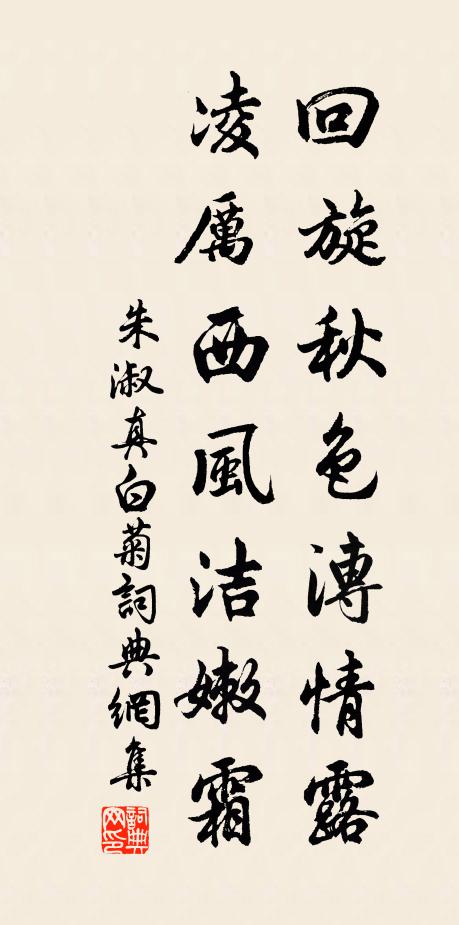 回旋秋色溥情露
凌厲西風洁嫩霜
朱淑真白菊詞典網集
詞典網印